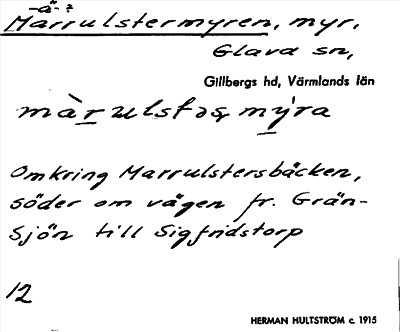 -ä- ?
Marrulstermyren, myr,
Glava sn,
Gillbergs hd, Värmlands län
màrulstəʂmýra
Omkring Marrulstersbäcken,
söder om vägen fr. Grän-
sjön till Sigfridstorp
12
HERMAN HULTSTRÖM c. 1915